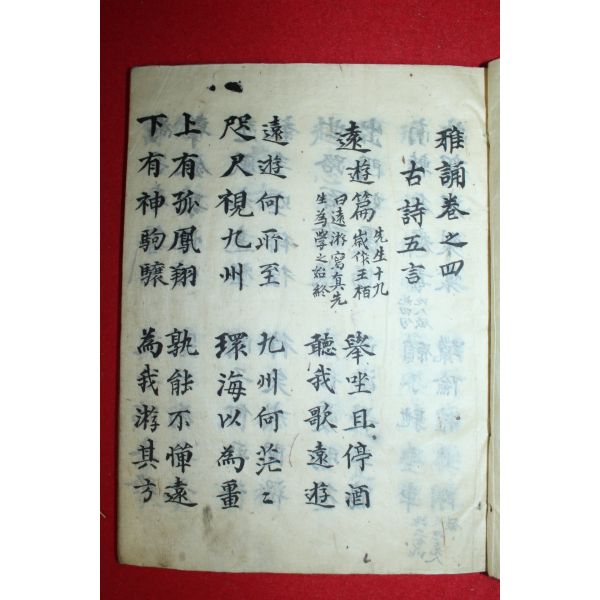 雅誦卷之四
古詩五言
遠遊篇
先生十九
歲作王栢
曰遠游寫真先
生為學之始終
擧坐且停酒
聽我歌遠遊
遠遊何所至
咫尺視九州
九州何茫〻
環海以為畺
上有孤鳳翔
下有神駒驤
孰能不憚遠
為我游其方